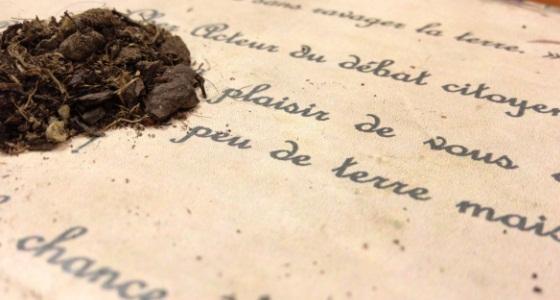 sans ravager la terre. »
Cher Acteur du débat citoyen
plaisir de vous
peu de terre mais
chance